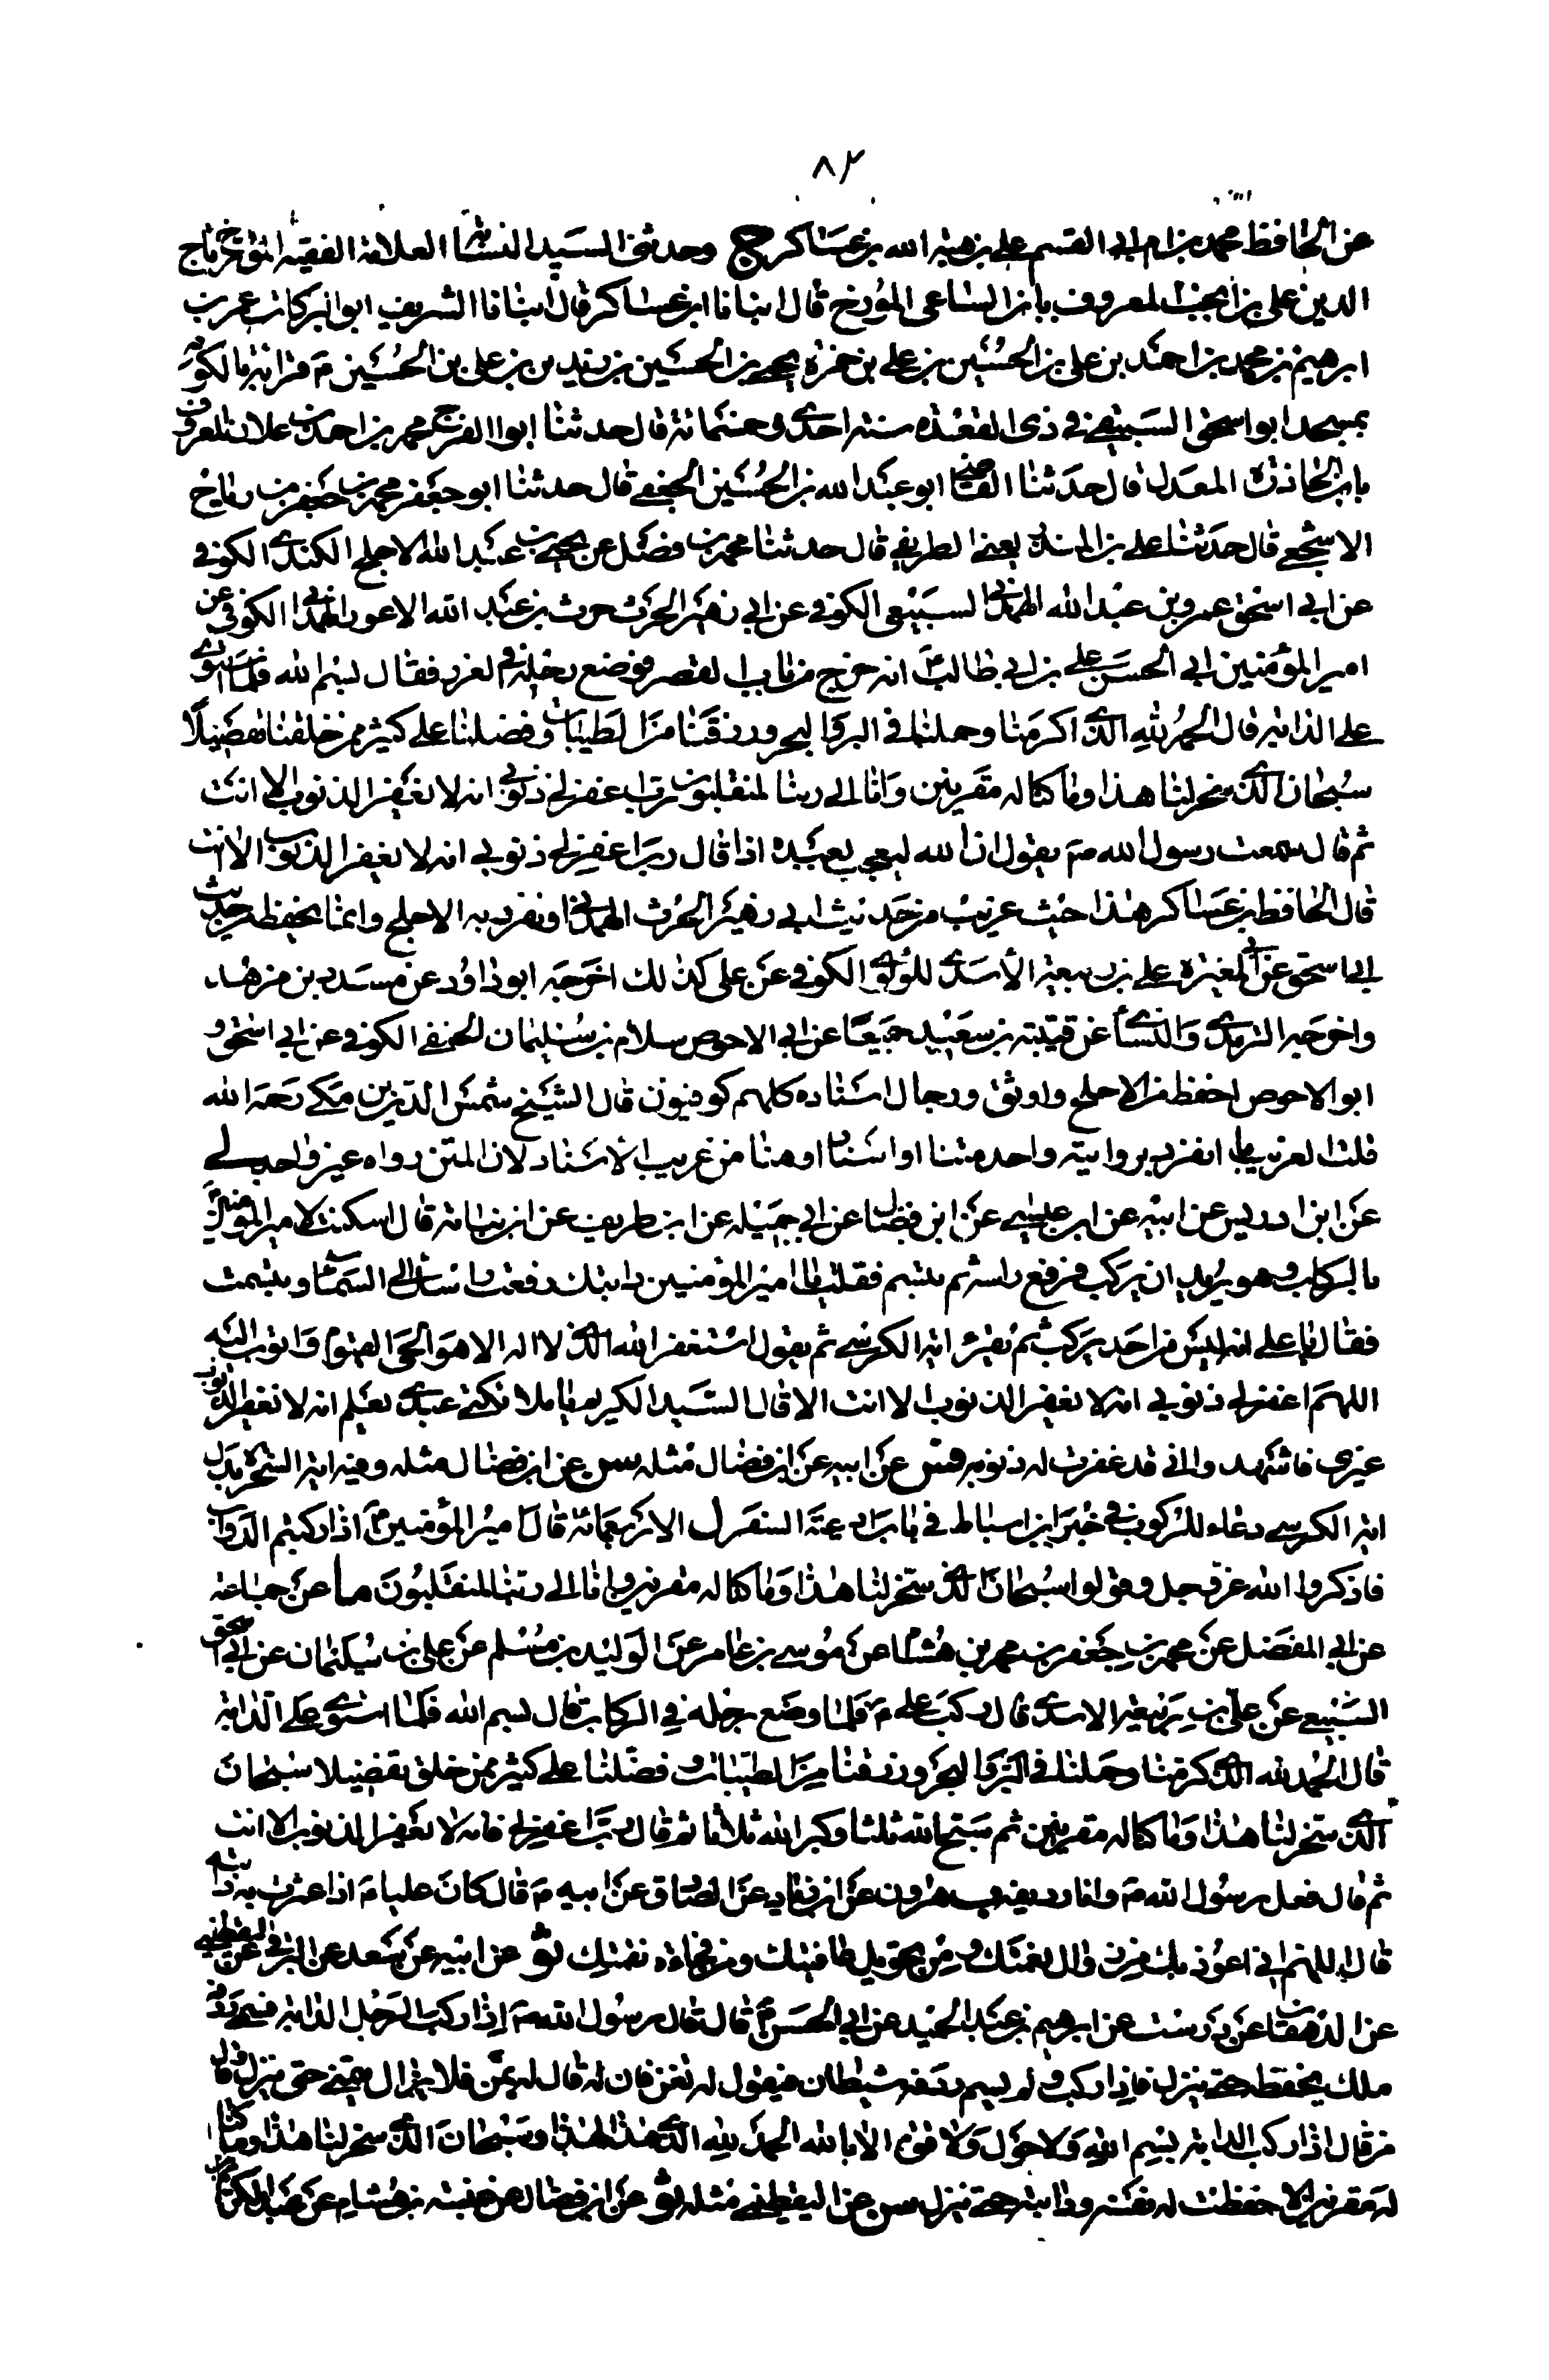 ٨٢
عن الحافظ محمد بن ام ابى القسم على بن هبة الله بن عساكر ح وحدثنى السيد النسابة العلامة الفقيه المؤرخ تاج
الدين على بن انجب المعروف بابن الساعى المؤرخ قال انبانا ابن عساكر قال انبانا الشريف ابو البركات عمر بن
ابرهيم بن محمد بن احمد بن على بن الحسين بن على بن حمزة بن يحيى بن الحسين بن زيد بن على بن الحسين م قراءة بالكوفة
بمسجد ابو اسحق السبيعى فى ذى القعدة سنة احدى وخمسمائة قال حدثنا ابو الفرج محمد بن احمد بن علان المعروف
بابن الخازن المعدل قال حدثنا القاضى ابو عبد الله بن الحسين الجعفى قال حدثنا ابو جعفر محمد بن جعفر بن رباح
الاشجعى قال حدثنا على بن المنذر يعنى الطريقى قال حدثنا محمد بن فضيل عن يحيى بن عبد الله الاجلح الكندى الكوفى
عن ابى اسحق عمرو بن عبد الله الهمدانى السبيعى الكوفى عن ابى زهير الحرث حرث بن عبد الله الاعور الهمدانى الكوفى عن
امير المؤمنين ابى الحسن على بن ابى طالب انه خرج من باب القصر فوضع رجله فى الغرز فقال بسم الله فلما استوى
على الدابة قال الحمد لله الذى اكرمنا وحملنا فى البر والبحر ورزقنا من الطيبات وفضلنا على كثير ممن خلقنا تفضيلا
سبحان الذى سخر لنا هذا وما كنا له مقرنين وانا الى ربنا لمنقلبون رب اغفر لى ذنوبى انه لا يغفر الذنوب الا انت
ثم قال سمعت رسول الله ص يقول ان الله ليعجب بعبده اذا قال رب اغفر لى ذنوبى انه لا يغفر الذنوب الا انت
قال الحافظ بن عساكر هذا حديث غريب من حديث ابى زهير الحرث الهمدانى تفرد به الاجلح وانما يحفظ حديث
ابى اسحق عن ابى المغيرة على بن ربيعة الاسدى الكوفى عن على كذلك اخرجه ابو داود عن مسدد بن مسرهد
واخرجه الترمذى والنسائى عن قتيبة بن سعيد جميعا عن ابى الاحوص سلام بن سليمان الحنفى الكوفى عن ابى اسحق و
ابو الاحوص احفظ من الاجلح واوثق ورجال اسناده كلهم كوفيون قال الشيخ شمس الدين بن مكى رحمه الله
قلت الغريب ما انفرد بروايته واحد متنا او اسنادا وهنا من غريب الاسناد لان المتن رواه غير واحد لى
عن ابن ادريس عن ابيه عن ابن عيسى عن ابن فضال عن ابى جميلة عن ابن طريف عن ابن نباتة قال امسكت لامير المؤمنين
بالركاب وهو يريد ان يركب فرفع راسه ثم تبسم فقلت يا امير المؤمنين رايتك رفعت راسك الى السماء وتبسمت
فقال يا على انه ليس من احد يركب ثم يقرء اية الكرسى ثم يقول استغفر الله الذى لا اله الا هو الحى القيوم واتوب اليه
اللهم اغفر لى ذنوبى انه لا يغفر الذنوب الا انت الا قال السيد الكريم يا ملائكتى عبدى يعلم انه لا يغفر الذنوب
غيرى فاشهدوا انى قد غفرت له ذنوبه فس عن ابيه عن ابن فضال مثله سن عن ابن فضال مثله وفيه اية السخرة بدل
اية الكرسى دعاء للركوب فى خبر ابن اسباط فى باب ادعية السفر ل الاربعمائة قال امير المؤمنين اذا ركبتم الدواب
فاذكروا الله عز وجل وقولوا سبحان الذى سخر لنا هذا وما كنا له مقرنين وانا الى ربنا لمنقلبون ما عن جماعة
عن ابى المفضل عن محمد بن جعفر بن محمد بن هشام عن موسى بن عامر عن الوليد بن مسلم عن على بن سليمان عن ابى اسحق
السبيعى عن على بن ربيعة الاسدى قال ركب على م فلما وضع رجله فى الركاب قال بسم الله فلما استوى على الدابة
قال الحمد لله الذى كرمنا وحملنا فى البر والبحر ورزقنا من الطيبات وفضلنا على كثير ممن خلق تفضيلا سبحان
الذى سخر لنا هذا وما كنا له مقرنين ثم سبح الله ثلثا وكبر الله ثلاثا ثم قال رب اغفر لى فانه لا يغفر الذنوب الا انت
ثم قال فعل رسول الله ص وانا رديفه ب هرون عن ابن زياد عن الصادق عن ابيه م قال كان عليا م اذا عثرت به دابته
قال اللهم انى اعوذ بك من زوال نعمتك ومن تحويل عافيتك ومن فجاءة نقمتك ثو عن ابيه عن سعد عن البرقى عن اليقطينى
عن الدهقان عن درست عن ابرهيم بن عبد الحميد عن ابى الحسن قال قال رسول الله ص اذا ركب الرجل الدابة فسمى ردفه
ملك يحفظه حتى ينزل فاذا ركب ولم يسم ردفه شيطان فيقول له تغن فان قال له تمن فلا يزال يتمنى حتى ينزل وقال
من قال اذا ركب الدابة بسم الله ولا حول ولا قوة الا بالله الحمد لله الذى هدانا لهذا وسبحان الذى سخر لنا هذا وما كنا
له مقرنين الا حفظت له نفسه ودابته حتى ينزل سن عن اليقطينى مثله ثو عن ابن فضال عن عنبسة بن هشام عن عبد الكريم